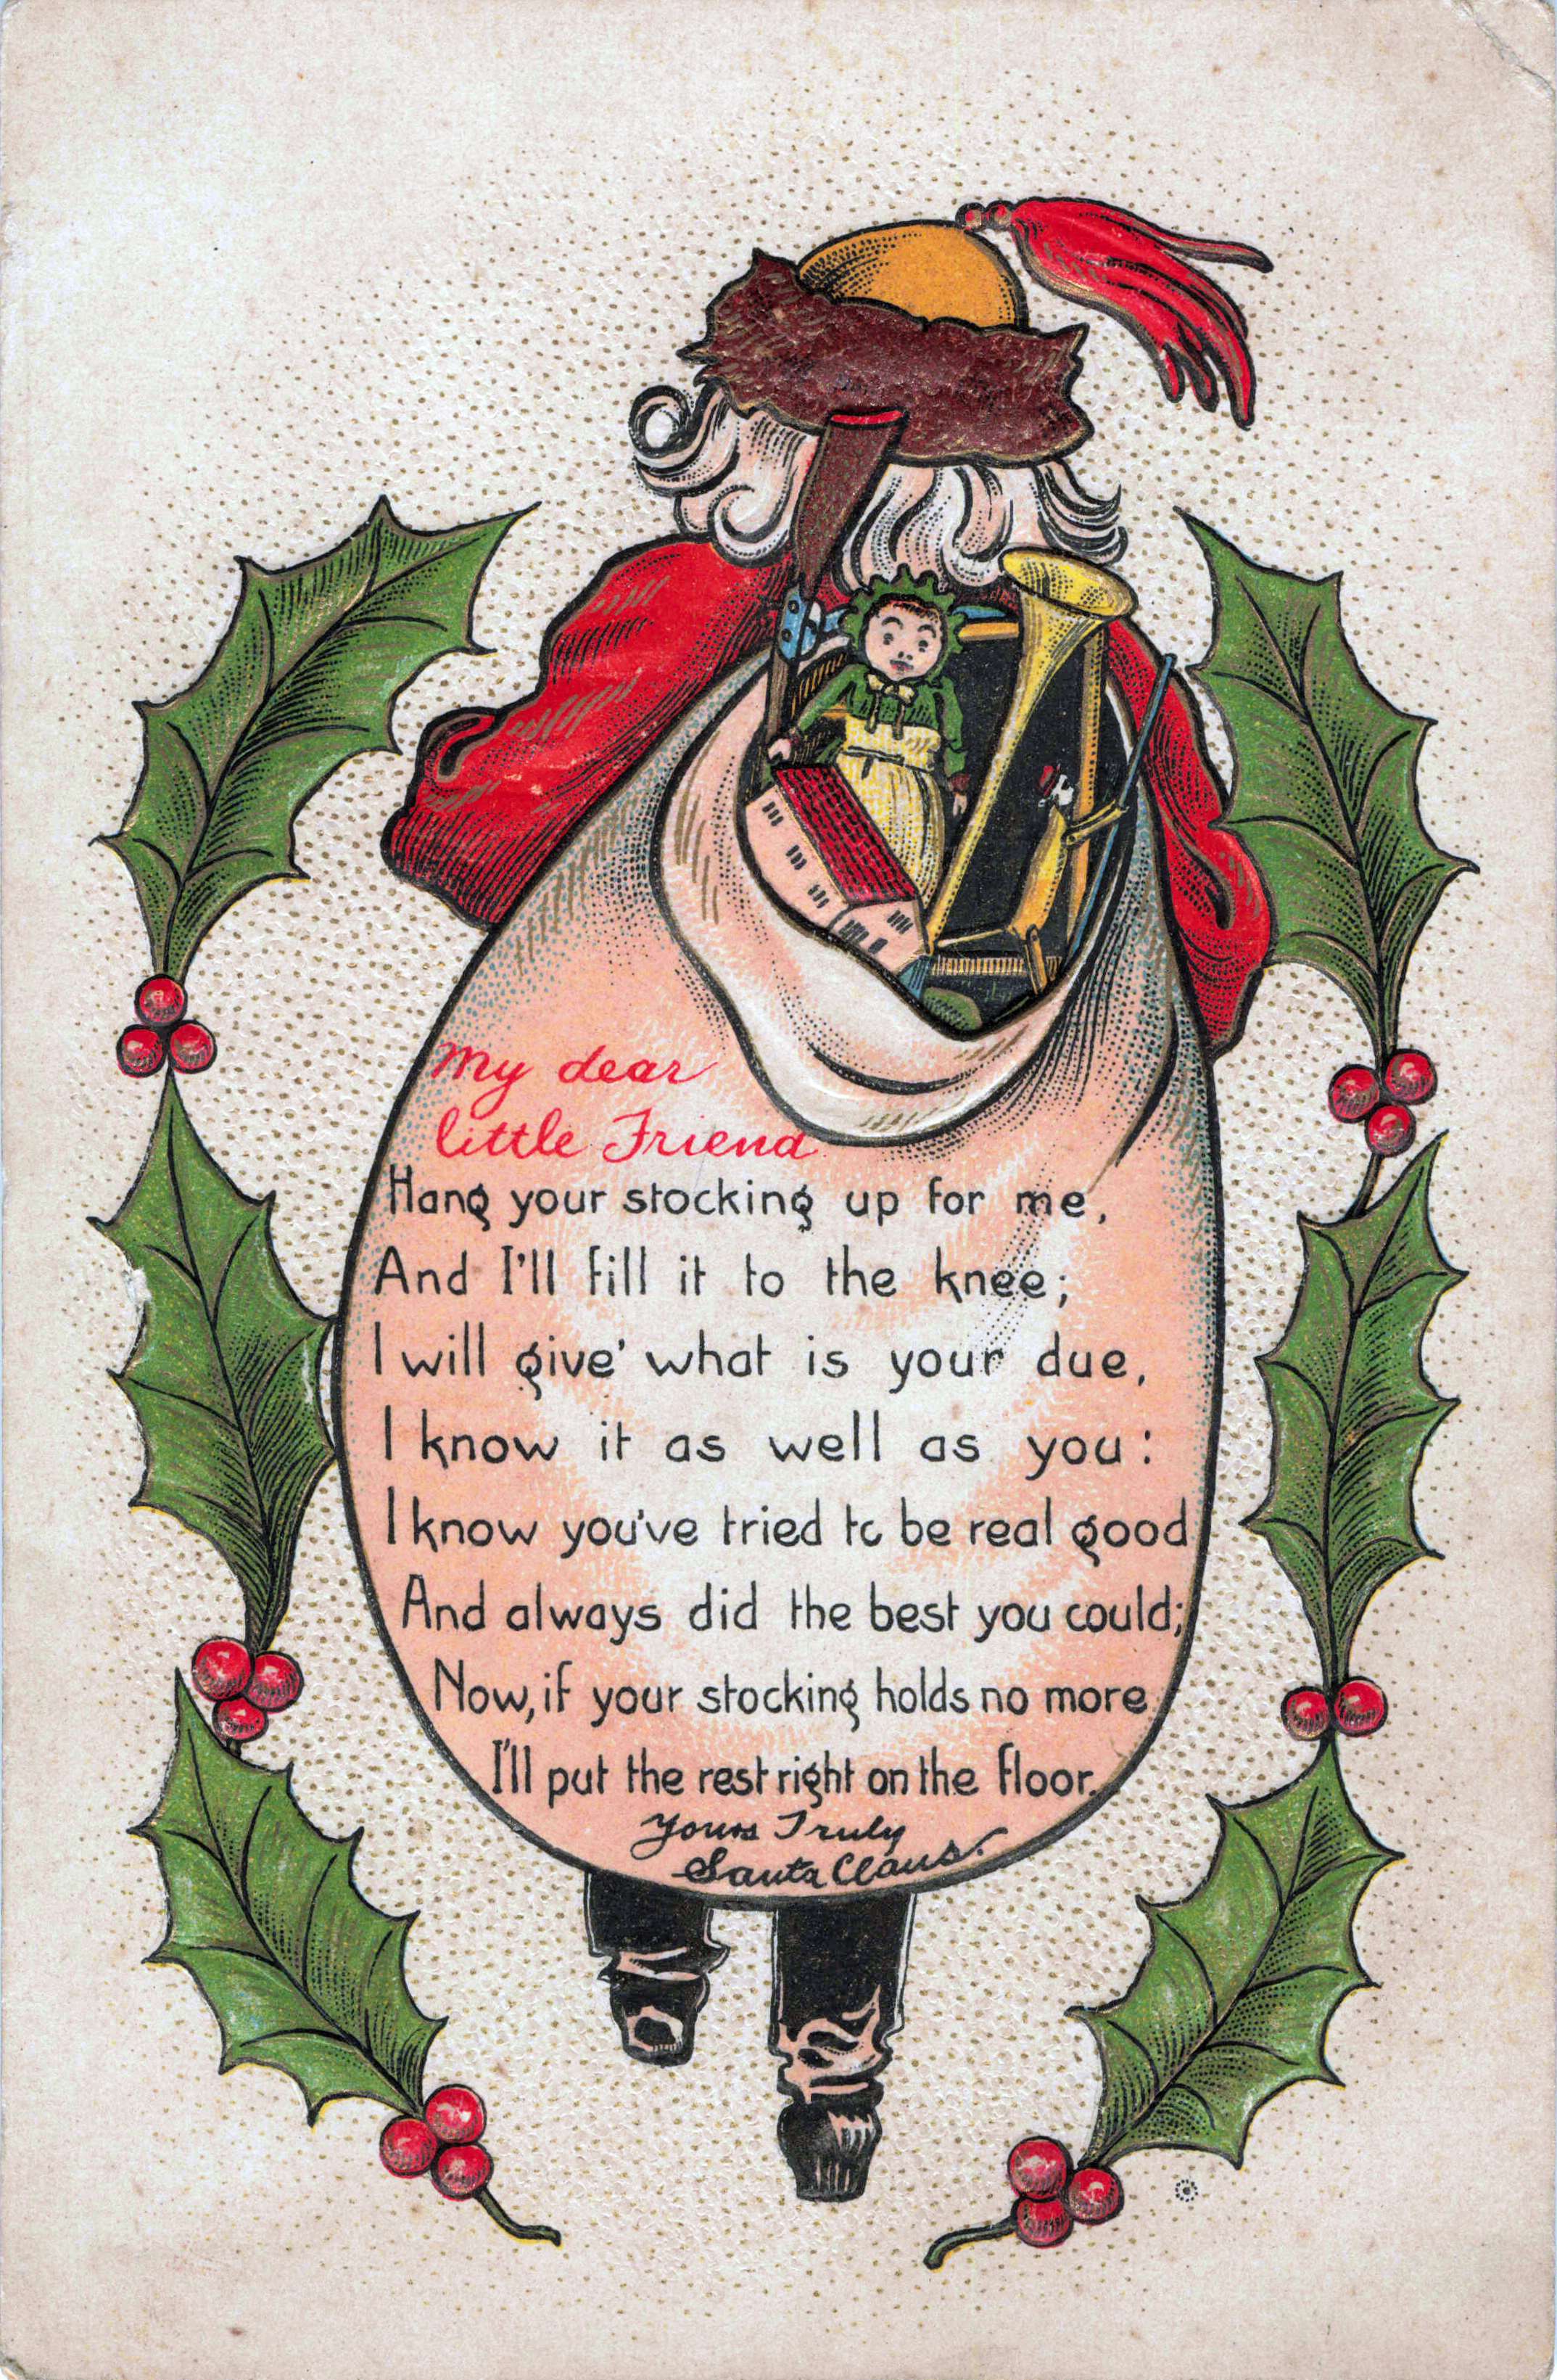 My dear
little Friend
Hang your stocking up for me,
And I'll fill it to the knee;
I will give' what is your due,
I know it as well as you:
I know you've tried to be real good
And always did the best you could;
Now, if your stocking holds no more
I'll put the rest right on the floor.
Yours Truly
Santa Claus.